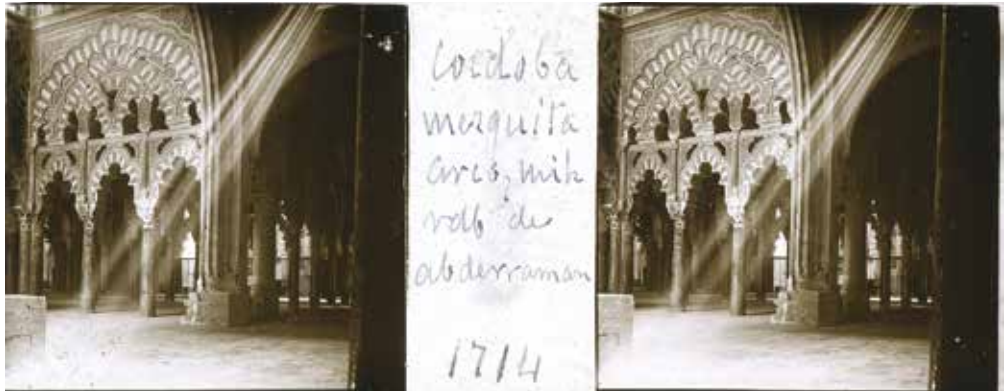 Cordoba
mezquita
arco, mih
rab de
abderraman
1714